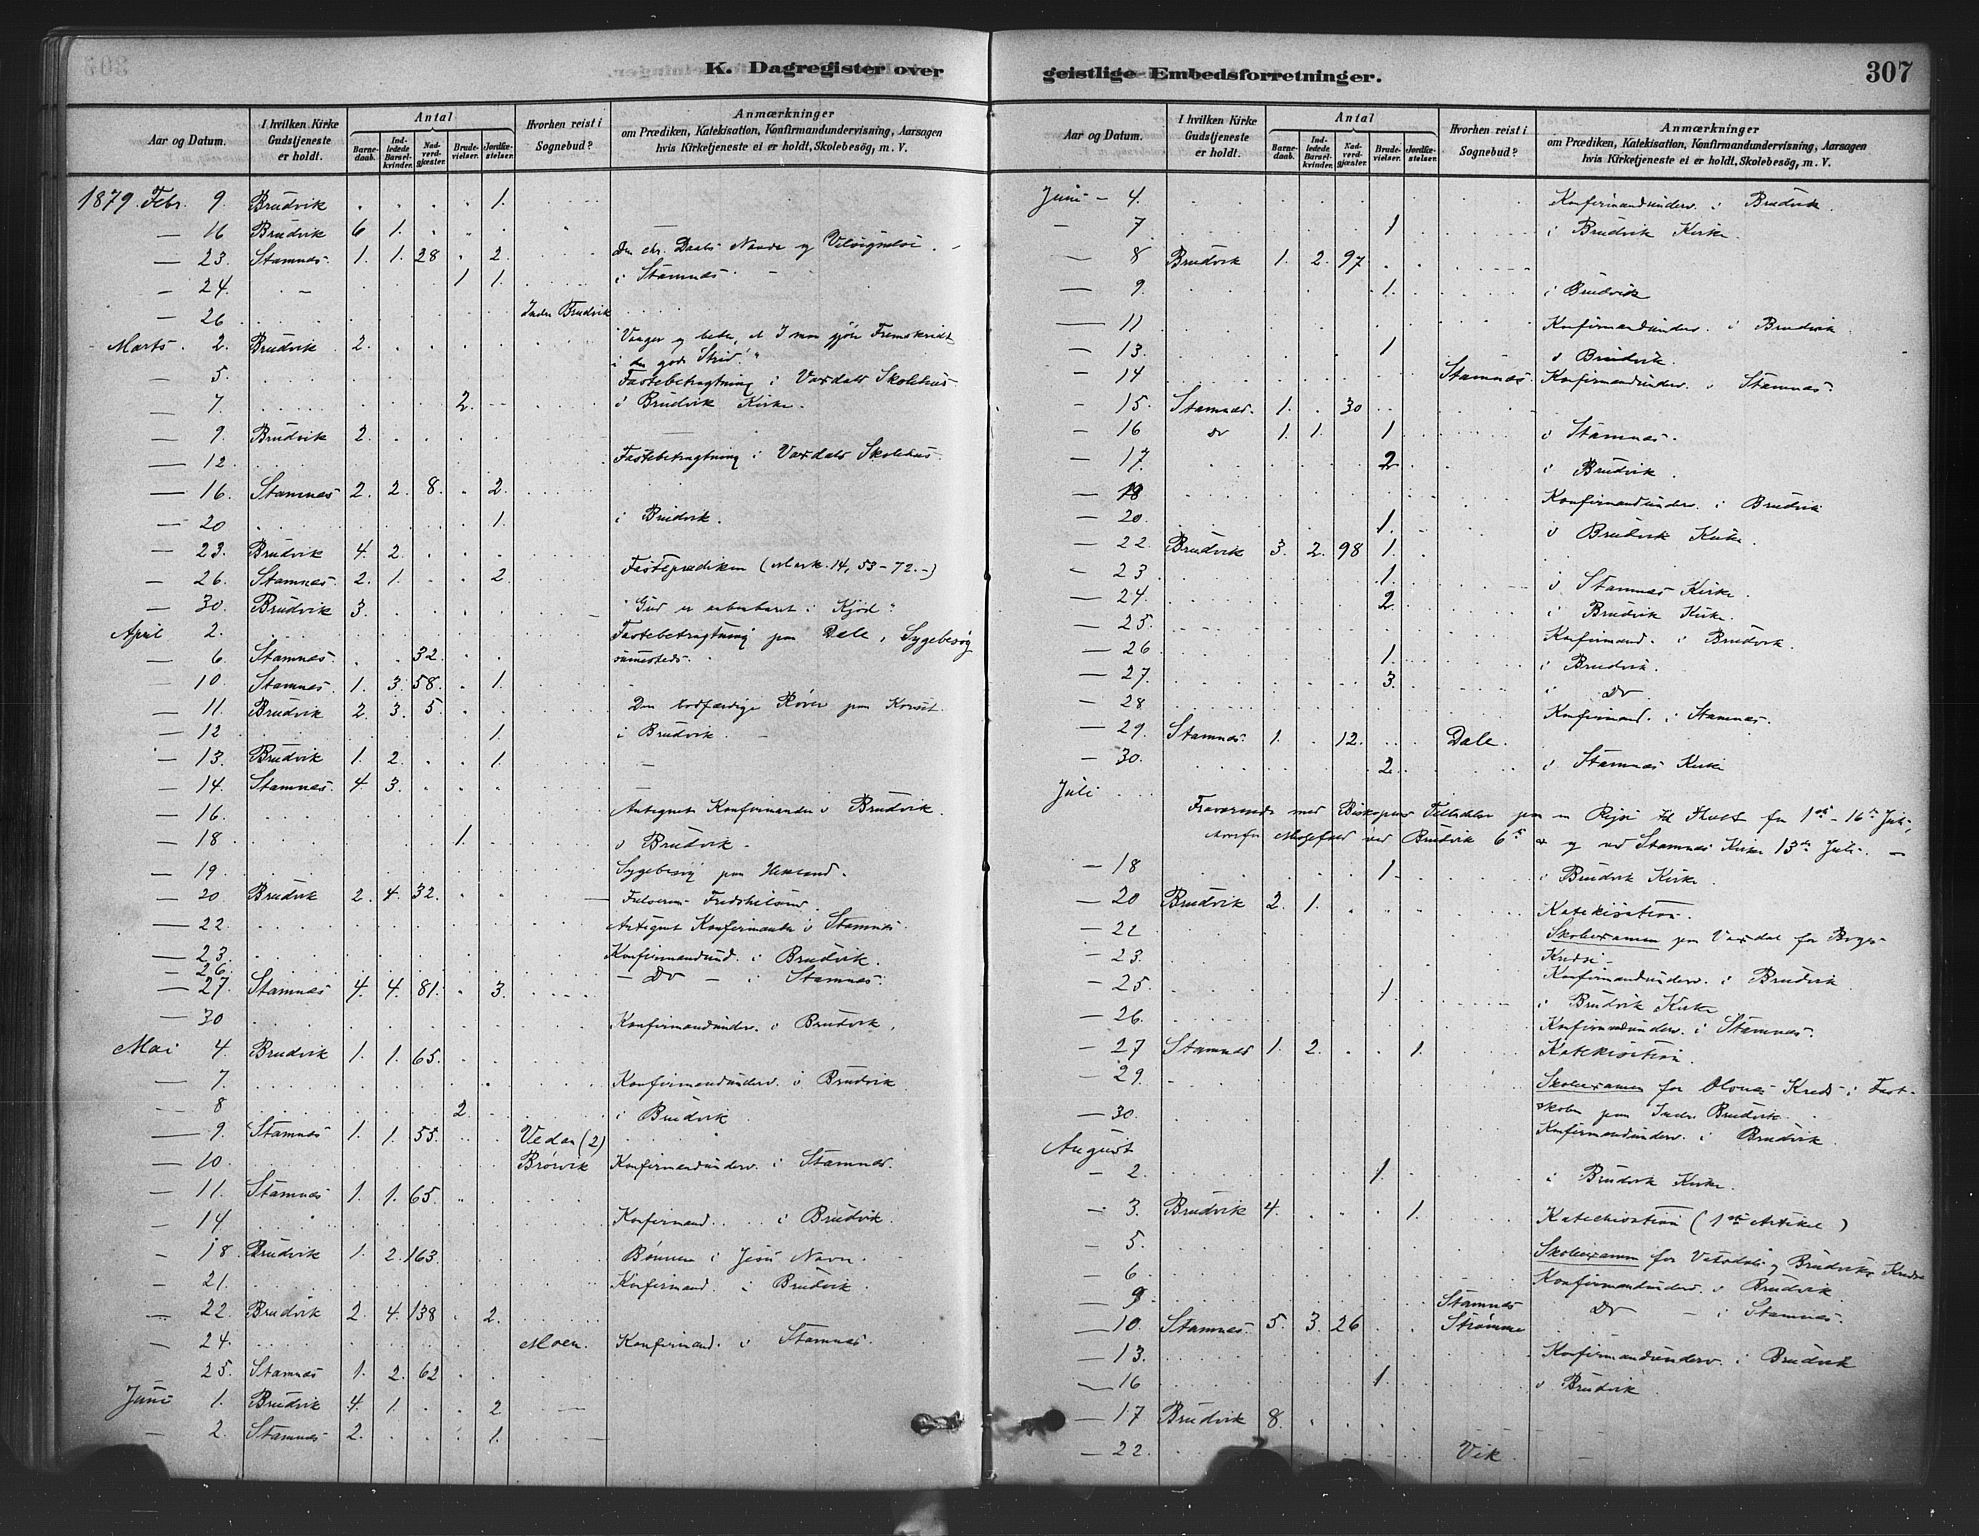 K. Dagregister over geistlige Embedsforretninger. 307
Aar og Datum. I hvilken Kirke Gudstjeneste er holdt. Antal Barnedaab. Indledede Barselkvinder. Nadverdgjæster. Brudevielser. Jordfæstelser. Hvorhen reist i Sognebud? Anmærkninger om Prædiken, Katekisation, Konfirmandundervisning, Aarsagen hvis Kirketjeneste ei er holdt, Skolebesøg, m. V.
1879 Febr. 9. Brudvik . . . . 1.
— 16 Brudvik 6 1. . .
— 23. Stamnes. 1. 1. 28 . 2. Den chr. Daabs Naade og Velsignelse. —
— 24. . — . 1 1. i Stamnes. —
— 26 Indre Brudvik
Marts. 2. Brudvik. 2. . . . Vaager og beder, at I maa gjøre Fremskridt
i den gode Strid."
— 5. Fastebetragtning i Vaxdals Skolehus
— 7. 2. — i Brudvik Kirke.
— 9. Brudvik 2. . . .
— 12. Fastebetragtning i Vaxdals Skolehus.
— 16. Stamnes 2. 2. 8. . 2.
— 20 1. i Brudvik.
— 23. Brudvik 4. 2. . .
— 26. Stamnes. 2. 1. . . 2. Fasteprædiken (Mark. 14, 53-72. -)
— 30. Brudvik 3. "Gud er aabenbaret i Kjød."
April 2. Fastebetragtning paa Dale, Sygebesøg
— 6 Stamnes. . . 32. sammesteds.
— 10 Stamnes. 1. 3. 58. . 1.
— 11. Brudvik 2. 3. 5. Den bodfærdige Røver paa Korset.
— 12 1. i Brudvik. —
— 13. Brudvik 1. 2. . . 1. —
— 14. Stamnes. 4 3.
— 16. Antegnet Konfirmander i Brudvik.
— 18 1. i Brudvik.
— 19. Sygebesøg paa
— 20 Brudvik 2. 4. 32. —
— 22. Antegnet Konfirmander i Stamnes.
— 23. Konfirmandund. i Brudvik.
— 26. — Do — i Stamnes.
— 27. Stamnes 4. 4. 81. . 3.
— 30 Konfirmandunderv. i Brudvik.
Mai 4. Brudvik 1. 1. 65.
— 7. Konfirmandunderv. i Brudvik
— 8 2. i Brudvik
— 9. Stamnes 1. 1. 55. Vedaa (2)
— 10. Brørvik Konfirmandunderv. i Stamnes.
— 11. Stamnes 1. 1. 65.
— 14. Konfirmand. . . i Brudvik.
— 18. Brudvik 1. 2. 163. Bønnen i Jesu Navn.
— 21. Konfirmand. i Brudvik
— 22 Brudvik 2. 4. 138 . 2.
— 24. Moen. Konfirmand. i Stamnes.
25. Stamnes 1. 2. 62
Juni 1. Brudvik 4. 1. . . 2 —
— 2. Stamnes 2. 1. —
Aar og Datum. I hvilken Kirke Gudstjeneste er holdt. Antal Barnedaab. Indledede Barselkvinder. Nadverdgjæster. Brudevielser. Jordfæstelser. Hvorhen reist i Sognebud? Anmærkninger om Prædiken, Katekisation, Konfirmandundervisning, Aarsagen hvis Kirketjeneste ei er holdt, Skolebesøg, m. V.
Juni — 4. Konfirmandunderv. i Brudvik.
— 7. 1 i Brudvik Kirke.
— 8 Brudvik 1. 2. 97
— 9. 1. i Brudvik
— 11 Konfirmandunderv. i Brudvik
— 13. 1 i Brudvik.
— 14 Stamnes. Konfirmandunderv. i Stamnes.
— 15. Stamnes. 1. . 30
— 16 do 1. 1. 1 i Stamnes.
— 17. 2 i Brudvik.
— 18 Konfirmandunderv. i Brudvik
— 20. 1. i Brudvik Kirke.
— 22. Brudvik 3. 2. 98 1.
— 23 1. i Stamnes Kirke.
— 24. 2. i Brudvik Kirke.
— 25. Konfirmand. i Brudvik.
— 26 1. i Brudvik.
— 27. 3. i do
— 28 Konfirmand. i Stamnes.
— 29. Stamnes. 1. . 12. Dale.
— 30. 2. i Stamnes Kirke
Juli Fraværende med Biskopens Tilladelse paa en Rejse til fra 1ste - 16de Juli,
Messefald ved Brudvik 6te og ved Stamnes Kirke 13de Juli. —
— 18 1. i Brudvik Kirke.
— 20 Brudvik 2. 1. Katekisation.
— 22 Skoleexamen paa Vaxdal for
— 23. Konfirmandunderv. i Brudvik.
— 25. 1. i Brudvik Kirke
— 26. Konfirmandunderv. i Stamnes.
— 27 Stamnes 1. 2. . . 1. Katekisation.
— 29. Skoleexamen for Kreds i Fast-
— 30. skolen paa Indre Brudvik.
Konfirmandunderv. i Brudvik.
August
— 2 1. i Brudvik Kirke.
— 3. Brudvik 4. 1. Katechisation (1ste Artikel)
— 5. Skoleexamen for og Brudviks Kredse
— 6 Konfirmandunderv. i Brudvik.
— 9 Stamnes Do — i Stamnes.
— 10 Stamnes. 5. 3. 26 Strømme
— 13. Konfirmandunderv. i Brudvik
— 16 1. i Brudvik
— 17 Brudvik 8.
— 22. Vik —